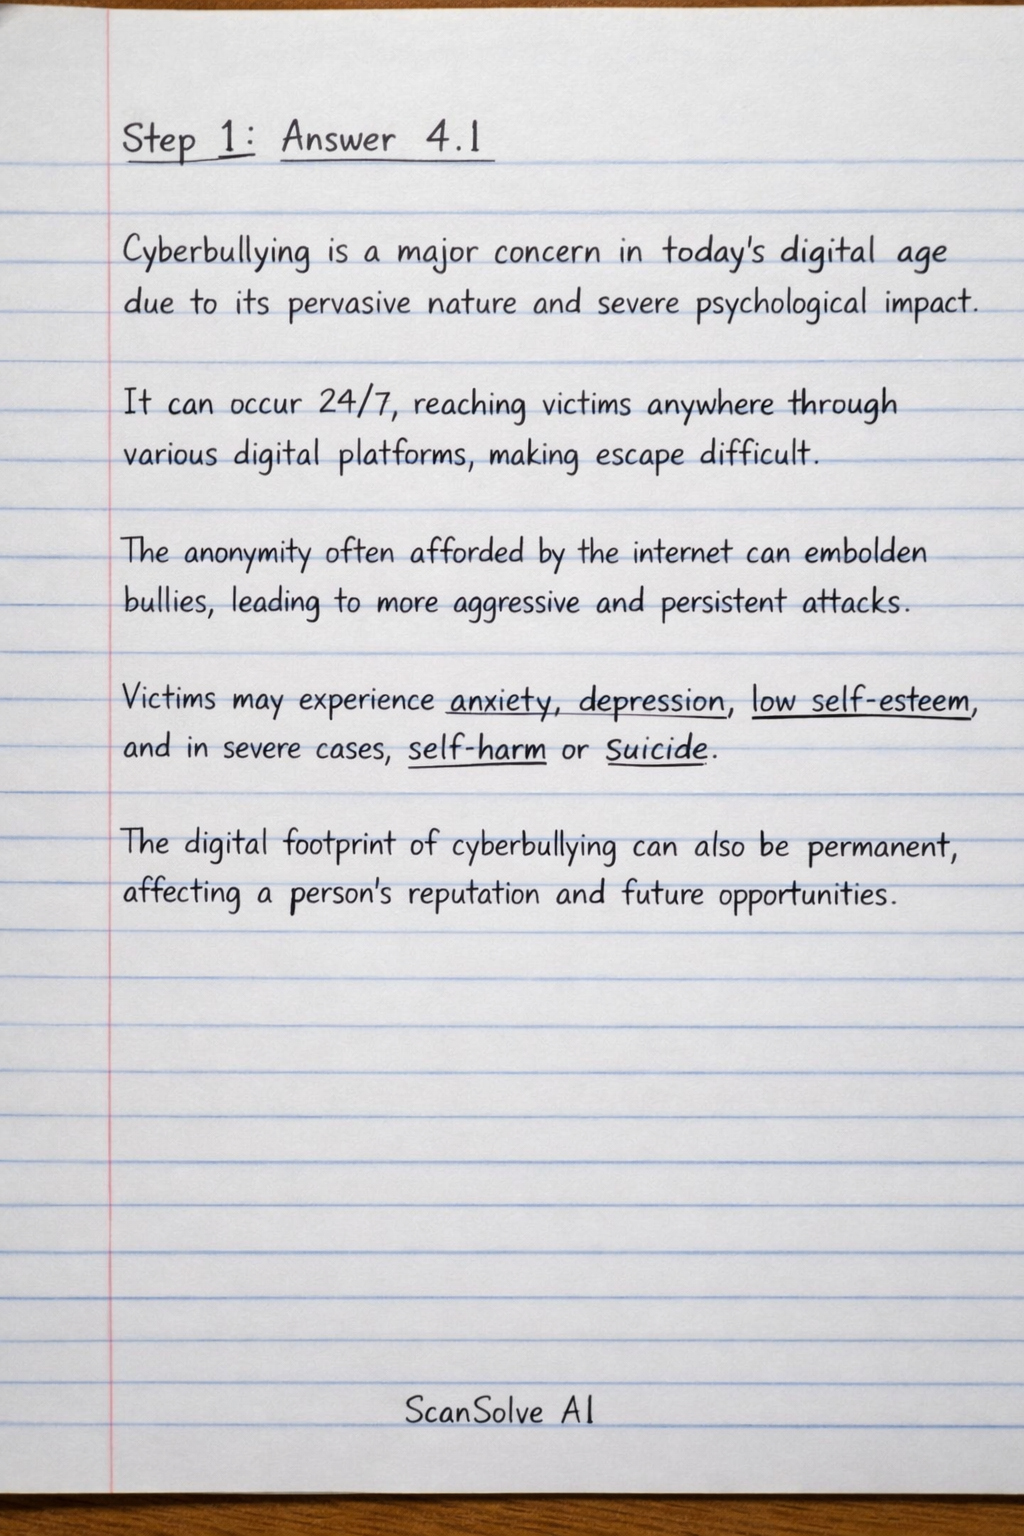 Step 1: Answer 4.1
Cyberbullying is a major concern in today's digital age
due to its pervasive nature and severe psychological impact.
It can occur 24/7, reaching victims anywhere through
various digital platforms, making escape difficult.
The anonymity often afforded by the internet can embolden
bullies, leading to more aggressive and persistent attacks.
Victims may experience anxiety, depression, low self-esteem,
and in severe cases, self-harm or suicide.
The digital footprint of cyberbullying can also be permanent,
affecting a person's reputation and future opportunities.
ScanSolve AI